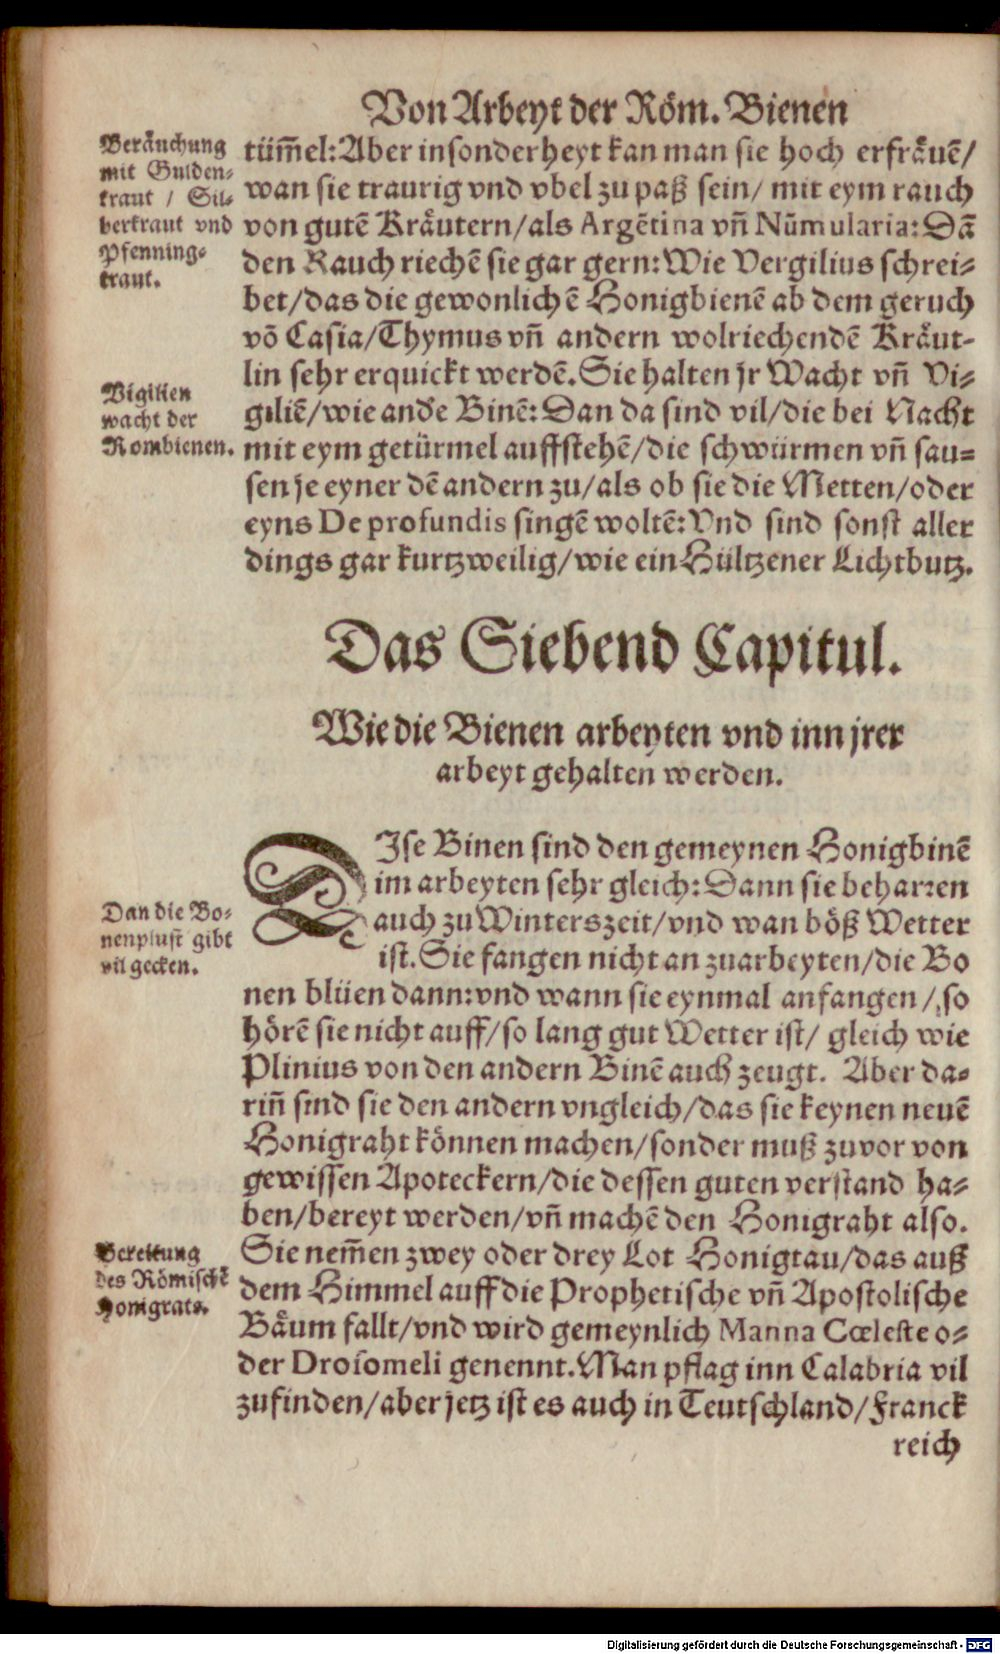 Von Arbeyt der Röm. Bienen
Beräuchung
mit Gulden-
kraut / Sil-
berkraut vnd
Pfenning-
kraut.
tüm̃el: Aber insonderheyt kan man sie hoch erfräuẽ/
wan sie traurig vnd vbel zu paß sein/ mit eym rauch
von gutẽ Kräutern/ als Argẽtina vñ Nũmularia: Dã
den Rauch riechẽ sie gar gern: Wie Vergilius schrei-
bet/ das die gewonlichẽ Honigbienẽ ab dem geruch
võ Casia/ Thymus vñ andern wolriechendẽ Kräut-
lin sehr erquickt werdẽ. Sie halten jr Wacht vñ Vi-
Vigilien
wacht der
Rombienen.
giliẽ/ wie andeʼe Binẽ: Dan da sind vil/ die bei Nacht
mit eym getürmel auffstehẽ/ die schwürmen vñ sau-
sen je eyner dẽ andern zu/ als ob sie die Metten/ oder
eyns De profundis singẽ woltẽ: Vnd sind sonst aller
dings gar kurtzweilig/ wie ein Hültzener Lichtbutz.
Das Siebend Capitul.
Wie die Bienen arbeyten vnd inn jrer
arbeyt gehalten werden.
DIse Binen sind den gemeynen Honigbinẽ
im arbeyten sehr gleich: Dann sie beharren
auch zu Winterszeit/ vnd wan böß Wetter
ist. Sie fangen nicht an zuarbeyten/ die Bo
Dan die Bo-
nenplust gibt
vil gecken.
nen blüen dann: vnd wann sie eynmal anfangen/ so
hörẽ sie nicht auff/ so lang gut Wetter ist/ gleich wie
Plinius von den andern Binẽ auch zeugt. Aber da-
riñ sind sie den andern vngleich/ das sie keynen neuẽ
Honigraht können machen/ sonder muß zuvor von
gewissen Apoteckern/ die dessen guten verstand ha-
ben/ bereyt werden/ vñ machẽ den Honigraht also.
Bereitung
des Römischẽ
Honigrats.
Sie nem̃en zwey oder drey Lot Honigtau/ das auß
dem Himmel auff die Prophetische vñ Apostolische
Bäum fallt/ vnd wird gemeynlich Manna Cœleste o-
der Drosomeli genennt. Man pflag inn Calabria vil
zufinden/ aber jetz ist es auch in Teutschland/ Franck
reich
Digitalisierung gefördert durch die Deutsche Forschungsgemeinschaft - DFG